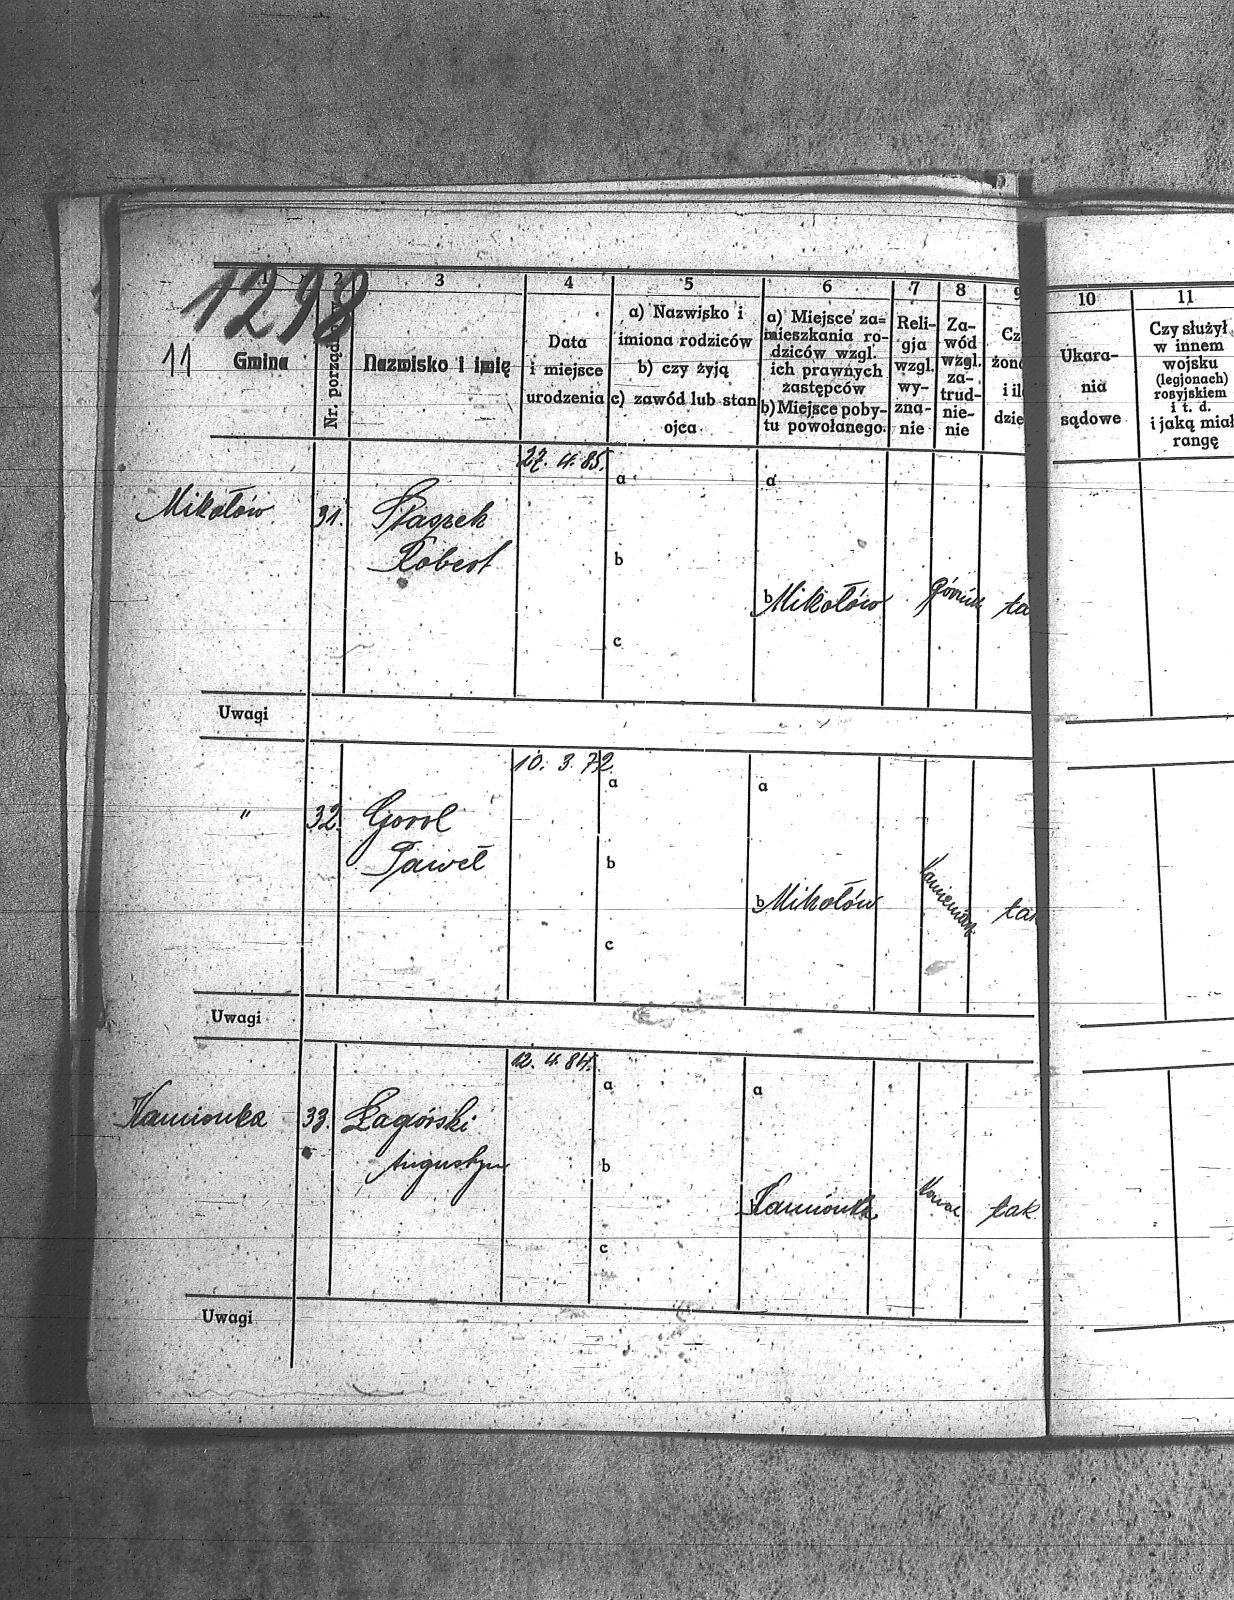 1298
11
1 2 3 4 5 6 7 8 9 10 11
Gmina
Nr. porząd
Nazwisko i imię
Data
i miejsce
urodzenia
a) Nazwisko i
imiona rodziców
b) czy żyją
c) zawód lub stan
ojca
a) Miejsce za=
mieszkania ro-
dziców wzgl.
ich prawnych
zastępców
b) Miejsce poby-
tu powołanego.
Reli-
gja
wzgl.
wy-
zna-
nie
Za-
wód
wzgl.
za-
trud-
nie-
nie
Cz
żona
i il
dzie
Ukara-
nia
sądowe
Czy służył
w innem
wojsku
(legjonach)
rosyjskiem
i t. d.
i jaką miał
rangę
27. 4. 85.
Mikołów 31.
Robert
a
b
c
a
b Mikołów
ta
Uwagi
10. 3. 72.
" 32. Gorol
Paweł
a
b
c
a
b Mikołów
tak
Uwagi
12. 4. 84.
Kamionka 33. Zagórski
Augustyn
a
b
c
a
Kamionka
tak
Uwagi